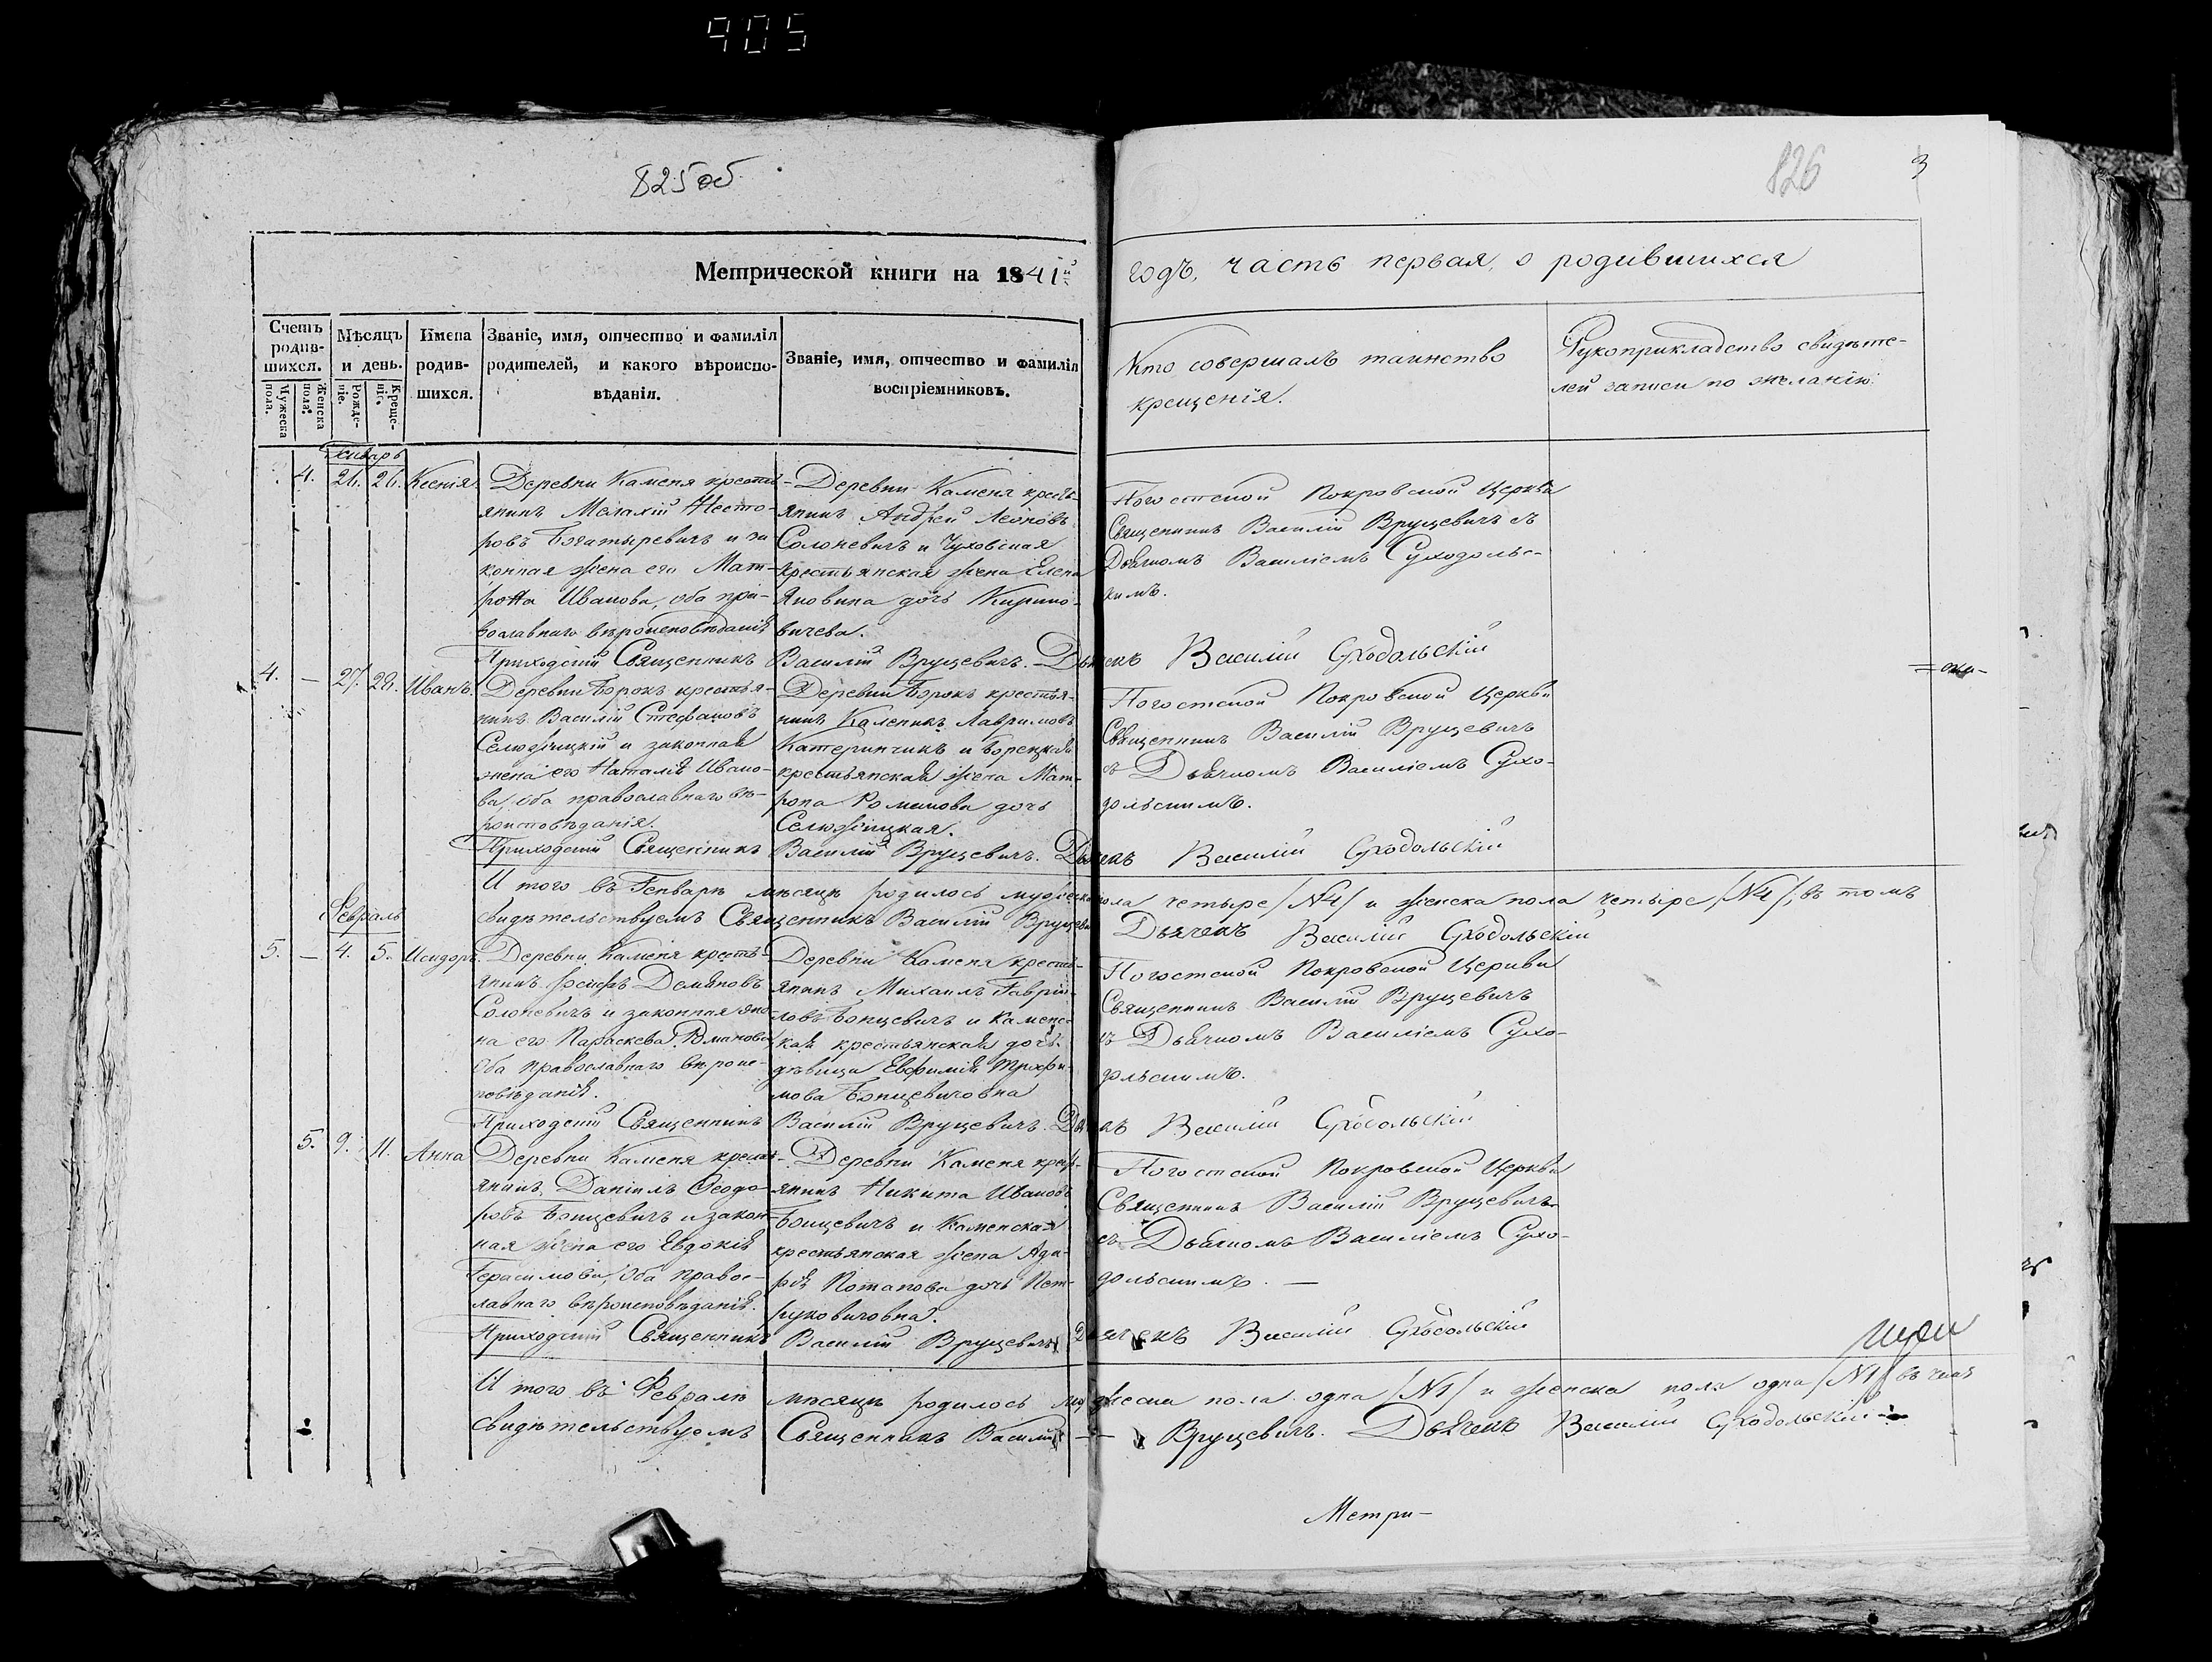 905
825об
826
3
Метрической книги на 1841й
годъ, часть первая, о родившихся
Счетъ родив-шихся.
Мужеска пола.
Женска пола.
Мѣсяцъ и день.
Рожде-ніе.
Креще-ніе.
Имена родив-шихся.
Званіе, имя, отчество и фамилія родителей, и какого вѣроиспо-вѣданія.
Званіе, имя, отчество и фамилія воспріемниковъ.
Кто совершалъ таинство
крещенія.
Рукоприкладство свидѣте-
лей записи по желанію.
Генварь
4. 26. 26. Ксенія
Деревни Каменя кресть-
янинъ Малахій Несто-
ровъ Богатыревичъ и за
конная жена его Мат-
рона Иванова, оба пра-
вославнаго вѣроисповѣданія
Деревни Каменя кресть-
янинъ Андрей Леоновъ
Солоневичъ и Чуховская
крестьянская жена Елена
Яковина дочь Кирило-
вичева.
Погостской Покровской Церкви
Священникъ Василій Вруцевичъ съ
Дьячкомъ Василіемъ Суходольс-
кимъ.
Приходскій Священникъ Василій Вруцевичъ. Дьячекъ Василій Суходольскій
4. – 27. 28. Иванъ.
Деревни Борокъ крестья-
нинъ Василій Стефановъ
Селюжицкій и законная
жена его Наталія Ивано-
ва, оба православнаго вѣ-
роисповѣданія.
Деревни Борокъ крестья-
нинъ Каленикъ Лавриновъ
Катеринчикъ и Борецкая
крестьянская жена Мат-
рона Романова дочь
Селюжицкая.
Погостской Покровской Церкви
Священникъ Василій Вруцевичъ
съ Дьячкомъ Василіемъ Сухо-
дольскимъ.
Приходскій Священникъ Василій Вруцевичъ. Дьячекъ Василій Суходольскій
И того въ Генварѣ мѣсяцѣ родилось мужеска пола четыре /№4/ и женска пола четыре /№4/, въ томъ
свидѣтельствуемъ Священникъ Василій Вруцевичъ Дьячекъ Василій Суходольскій
Февраль
5. – 4. 5. Исидоръ.
Деревни Каменя кресть-
янинъ Іосифъ Демяновъ
Солоневичъ и законная же-
на его Параскева Романова
оба православнаго вѣроис-
повѣданія.
Деревни Каменя кресть-
янинъ Михаилъ Гаврии-
ловъ Бопцевичъ и Каменс-
кая крестьянская дочь
дѣвица Евфимія Трофи-
мова Бопцевичовна
Погостской Покровской Церкви
Священникъ Василій Вруцевичъ
съ Дьячкомъ Василіемъ Сухо-
дольскимъ.
Приходскій Священникъ Василій Вруцевичъ. Дьячекъ Василій Суходольскій
5. 9. 11. Анна
Деревни Каменя кресть-
янинъ Даніилъ Феодо-
ровъ Бопцевичъ и закон-
ная жена его Евдокія
Герасимова, оба правос-
лавнаго вѣроисповѣданія.
Деревни Каменя крест-
янинъ Никита Ивановъ
Бопцевичъ и Каменская
крестьянская жена Ага-
фія Потапова дочь Пет-
руковичовна.
Погостской Покровской Церкви
Священникъ Василій Вруцевичъ
съ Дьячкомъ Василіемъ Сухо-
дольскимъ. —
Приходскій Священникъ Василій Вруцевичъ Дьячекъ Василій Суходольскій
И того въ Февралѣ мѣсяцѣ родилось мужеска пола одна /№1/ и женска пола одна /№1/ въ чемъ
свидѣтельствуемъ Священникъ Василій — Вруцевичъ. Дьячекъ Василій Суходольскій
Метри-